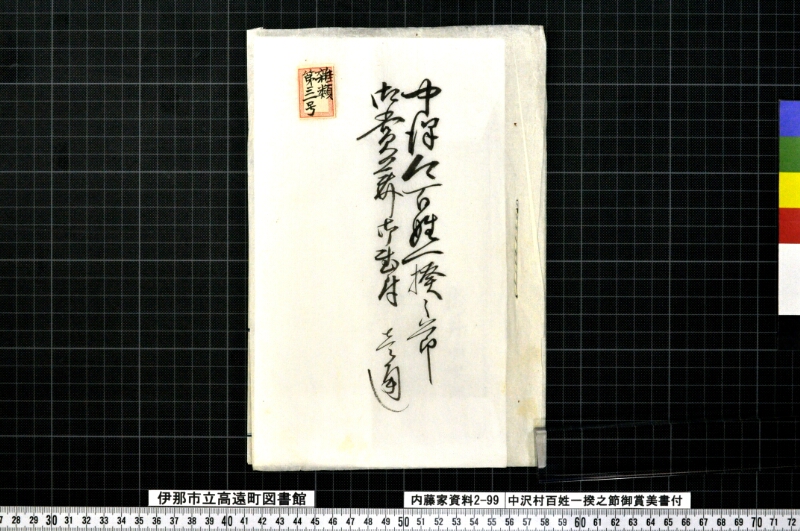 中澤村百姓一揆之節
御賞美御書付 壱通
雜類
第三号
伊那市立高遠町図書館
内藤家資料2-99 中沢村百姓一揆之節御賞美書付
28 29 30 31 32 33 34 35 36 37 38 39 40 41 42 43 44 45 46 47 48 49 50 51 52 53 54 55 56 57 58 59 60 61 62 63 64 65 66 67 68 69 70 71 72